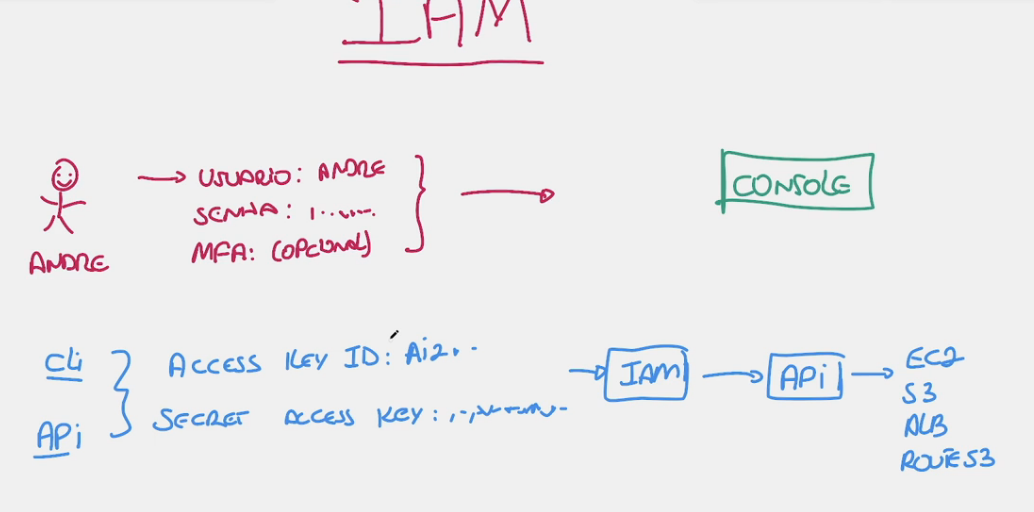 IAM
USUARIO: ANDRE
SENHA:
MFA: (OPCIONAL)
ANDRE
CONSOLE
CLi
APi
ACCESS KEY ID: Ai2...
SECRET ACCESS KEY:
IAM
APi
EC2
S3
ALB
ROUTE53